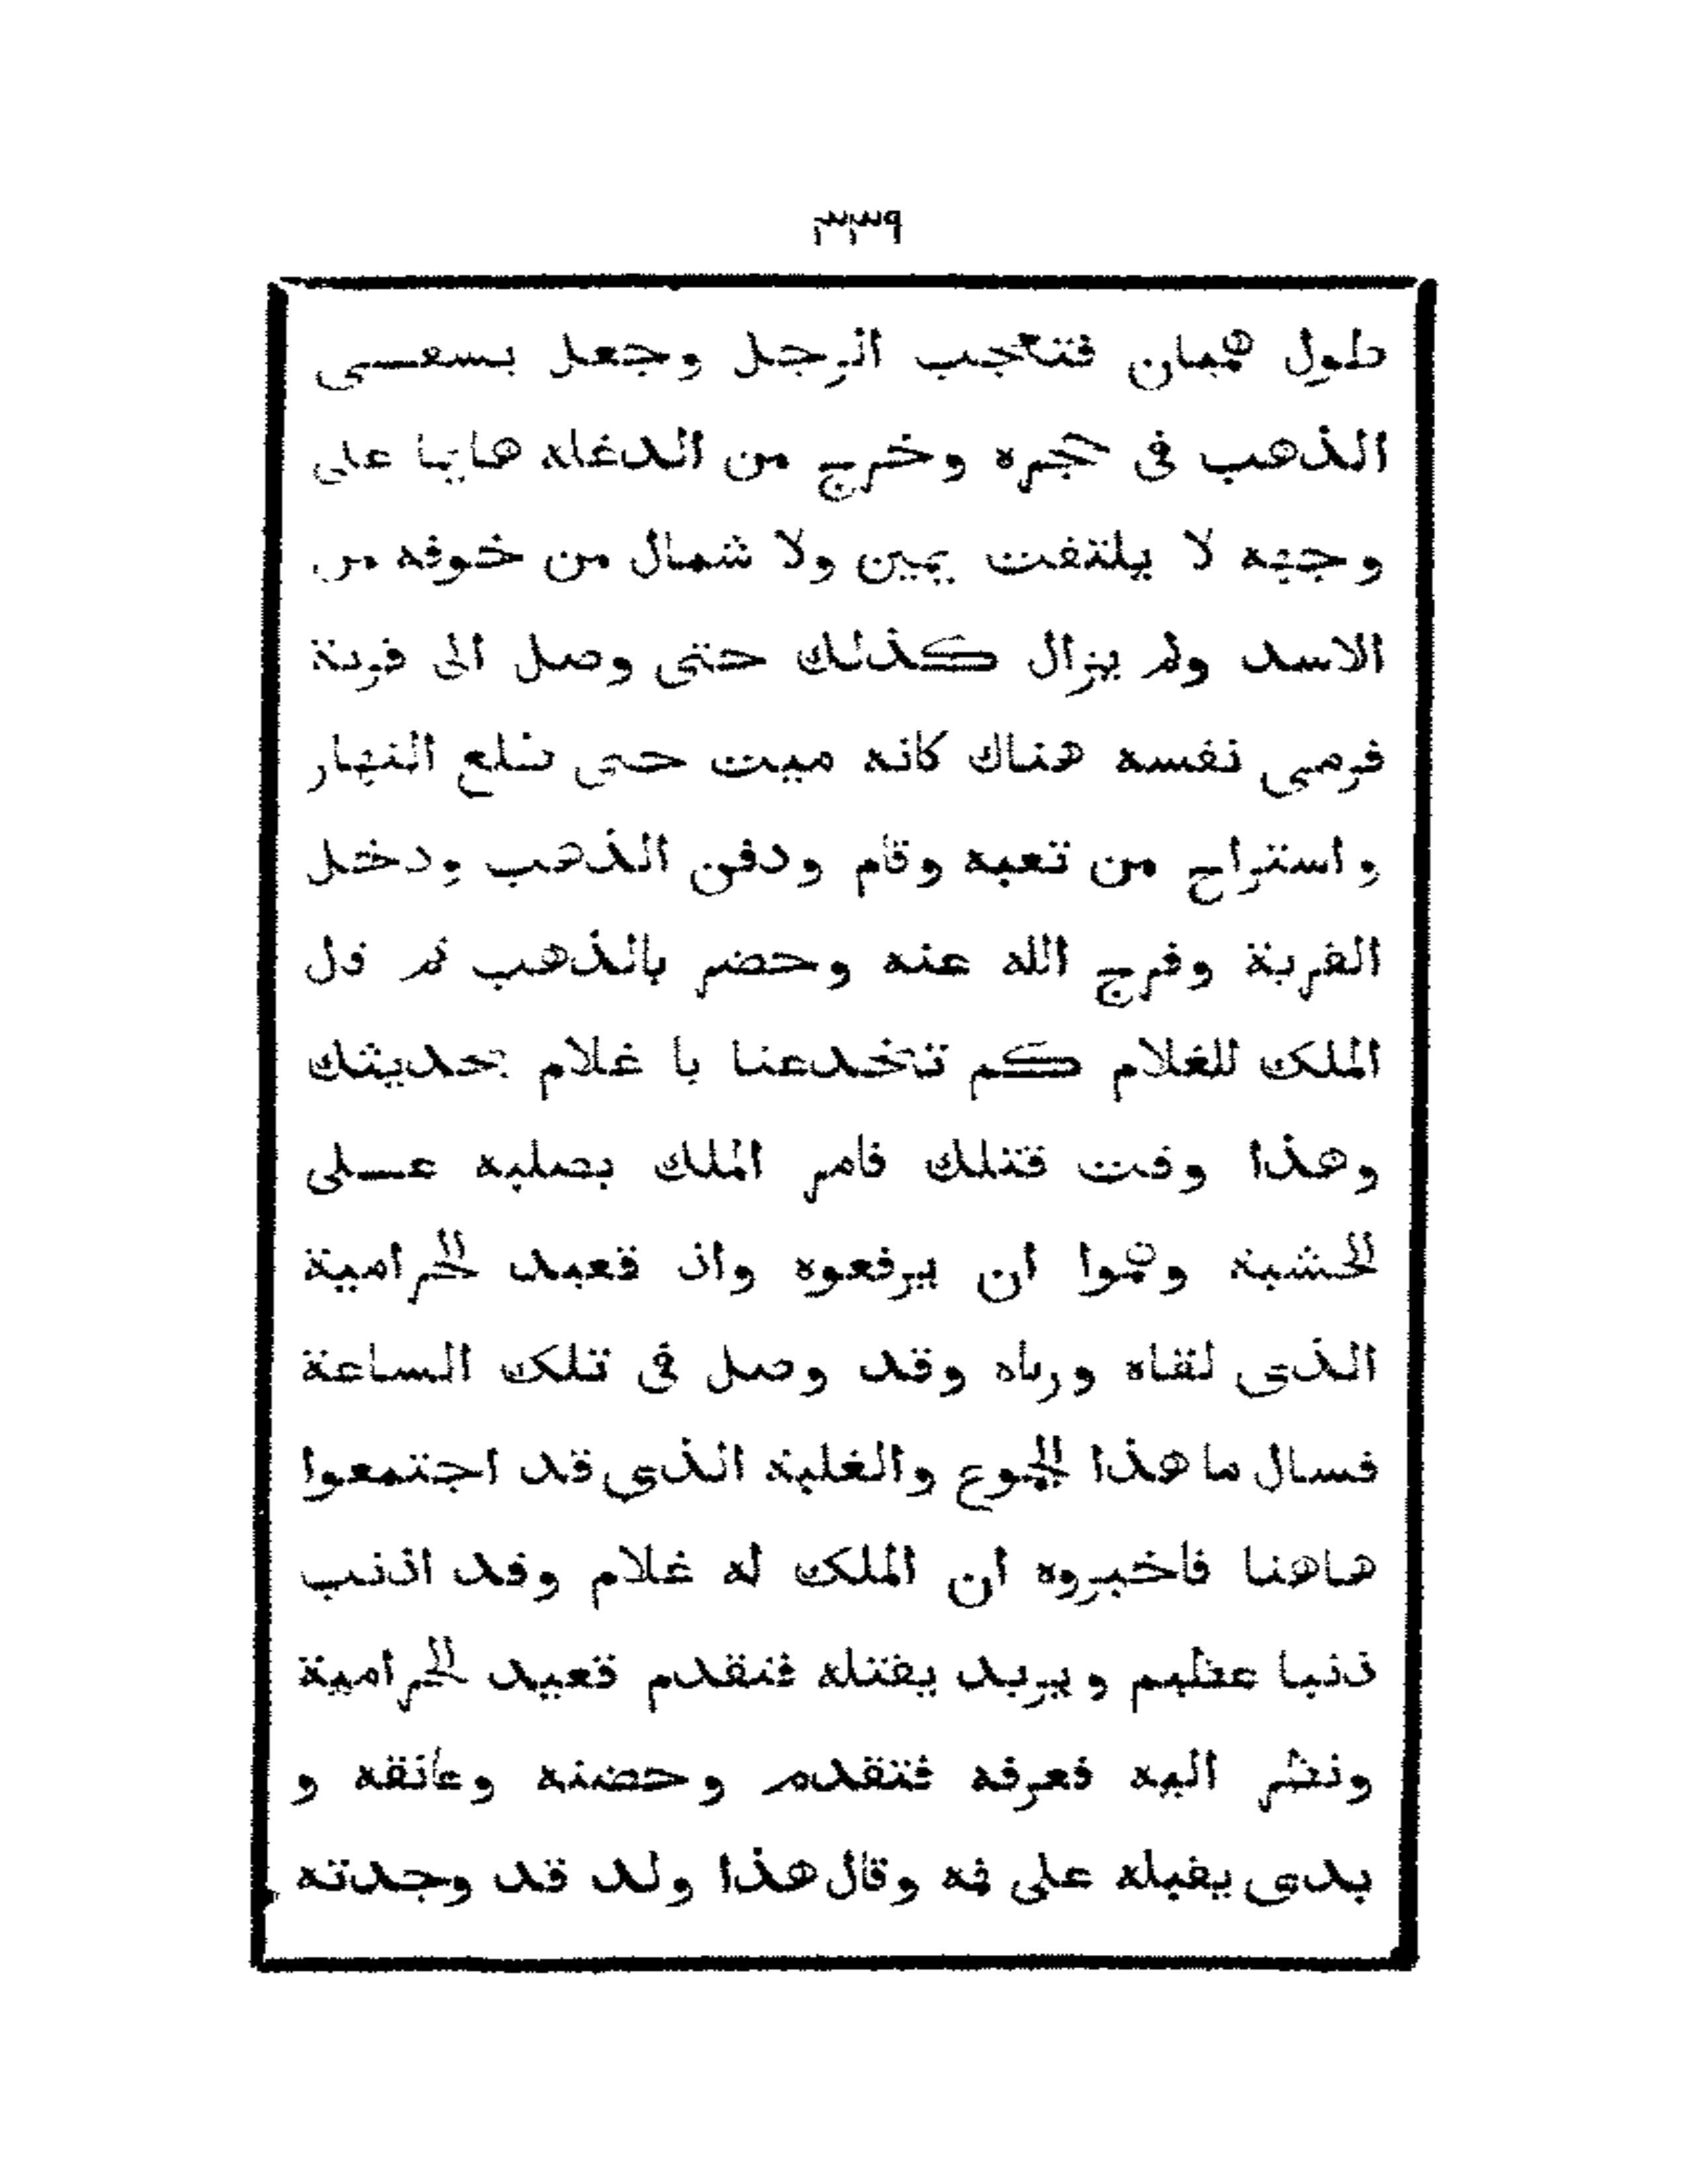 ٣٣٩
طول هميان فتتعجب الرجل وجعل يسعـــى
الذهب فى حجره وخرج من الدغله هايبا على
وجهه لا يلتفت يمين ولا شمال من خوفه من
الاسد ولم يزال كذلك حتى وصل الى قرية
فرمى نفسه هناك كانه ميت حتى طلع النهار
واستراح من تعبه وقام ودفن الذهب ودخل
القرية وفرج الله عنه وحضر بالذهب ثم قال
الملك للغلام كم تتخدعنا يا غلام بحديثك
وهذا وقت قتلك فامر الملك بصلبه عـــلى
الخشبة وهموا ان يرفعوه واذ قعيد الحرامية
الذى لقاه ورباه وقد وصل فى تلك الساعة
فسال ما هذا الجموع والغلبة الذى قد اجتمعوا
هاهنا فاخبروه ان الملك له غلام وقد اذنب
ذنبا عظيم ويريد يقتله فتقدم قعيد الحرامية
ونظر اليه فعرفه فتقدم وحضنه وعانقه و
بدى يقبله على فمه وقال هذا ولد قد وجدته